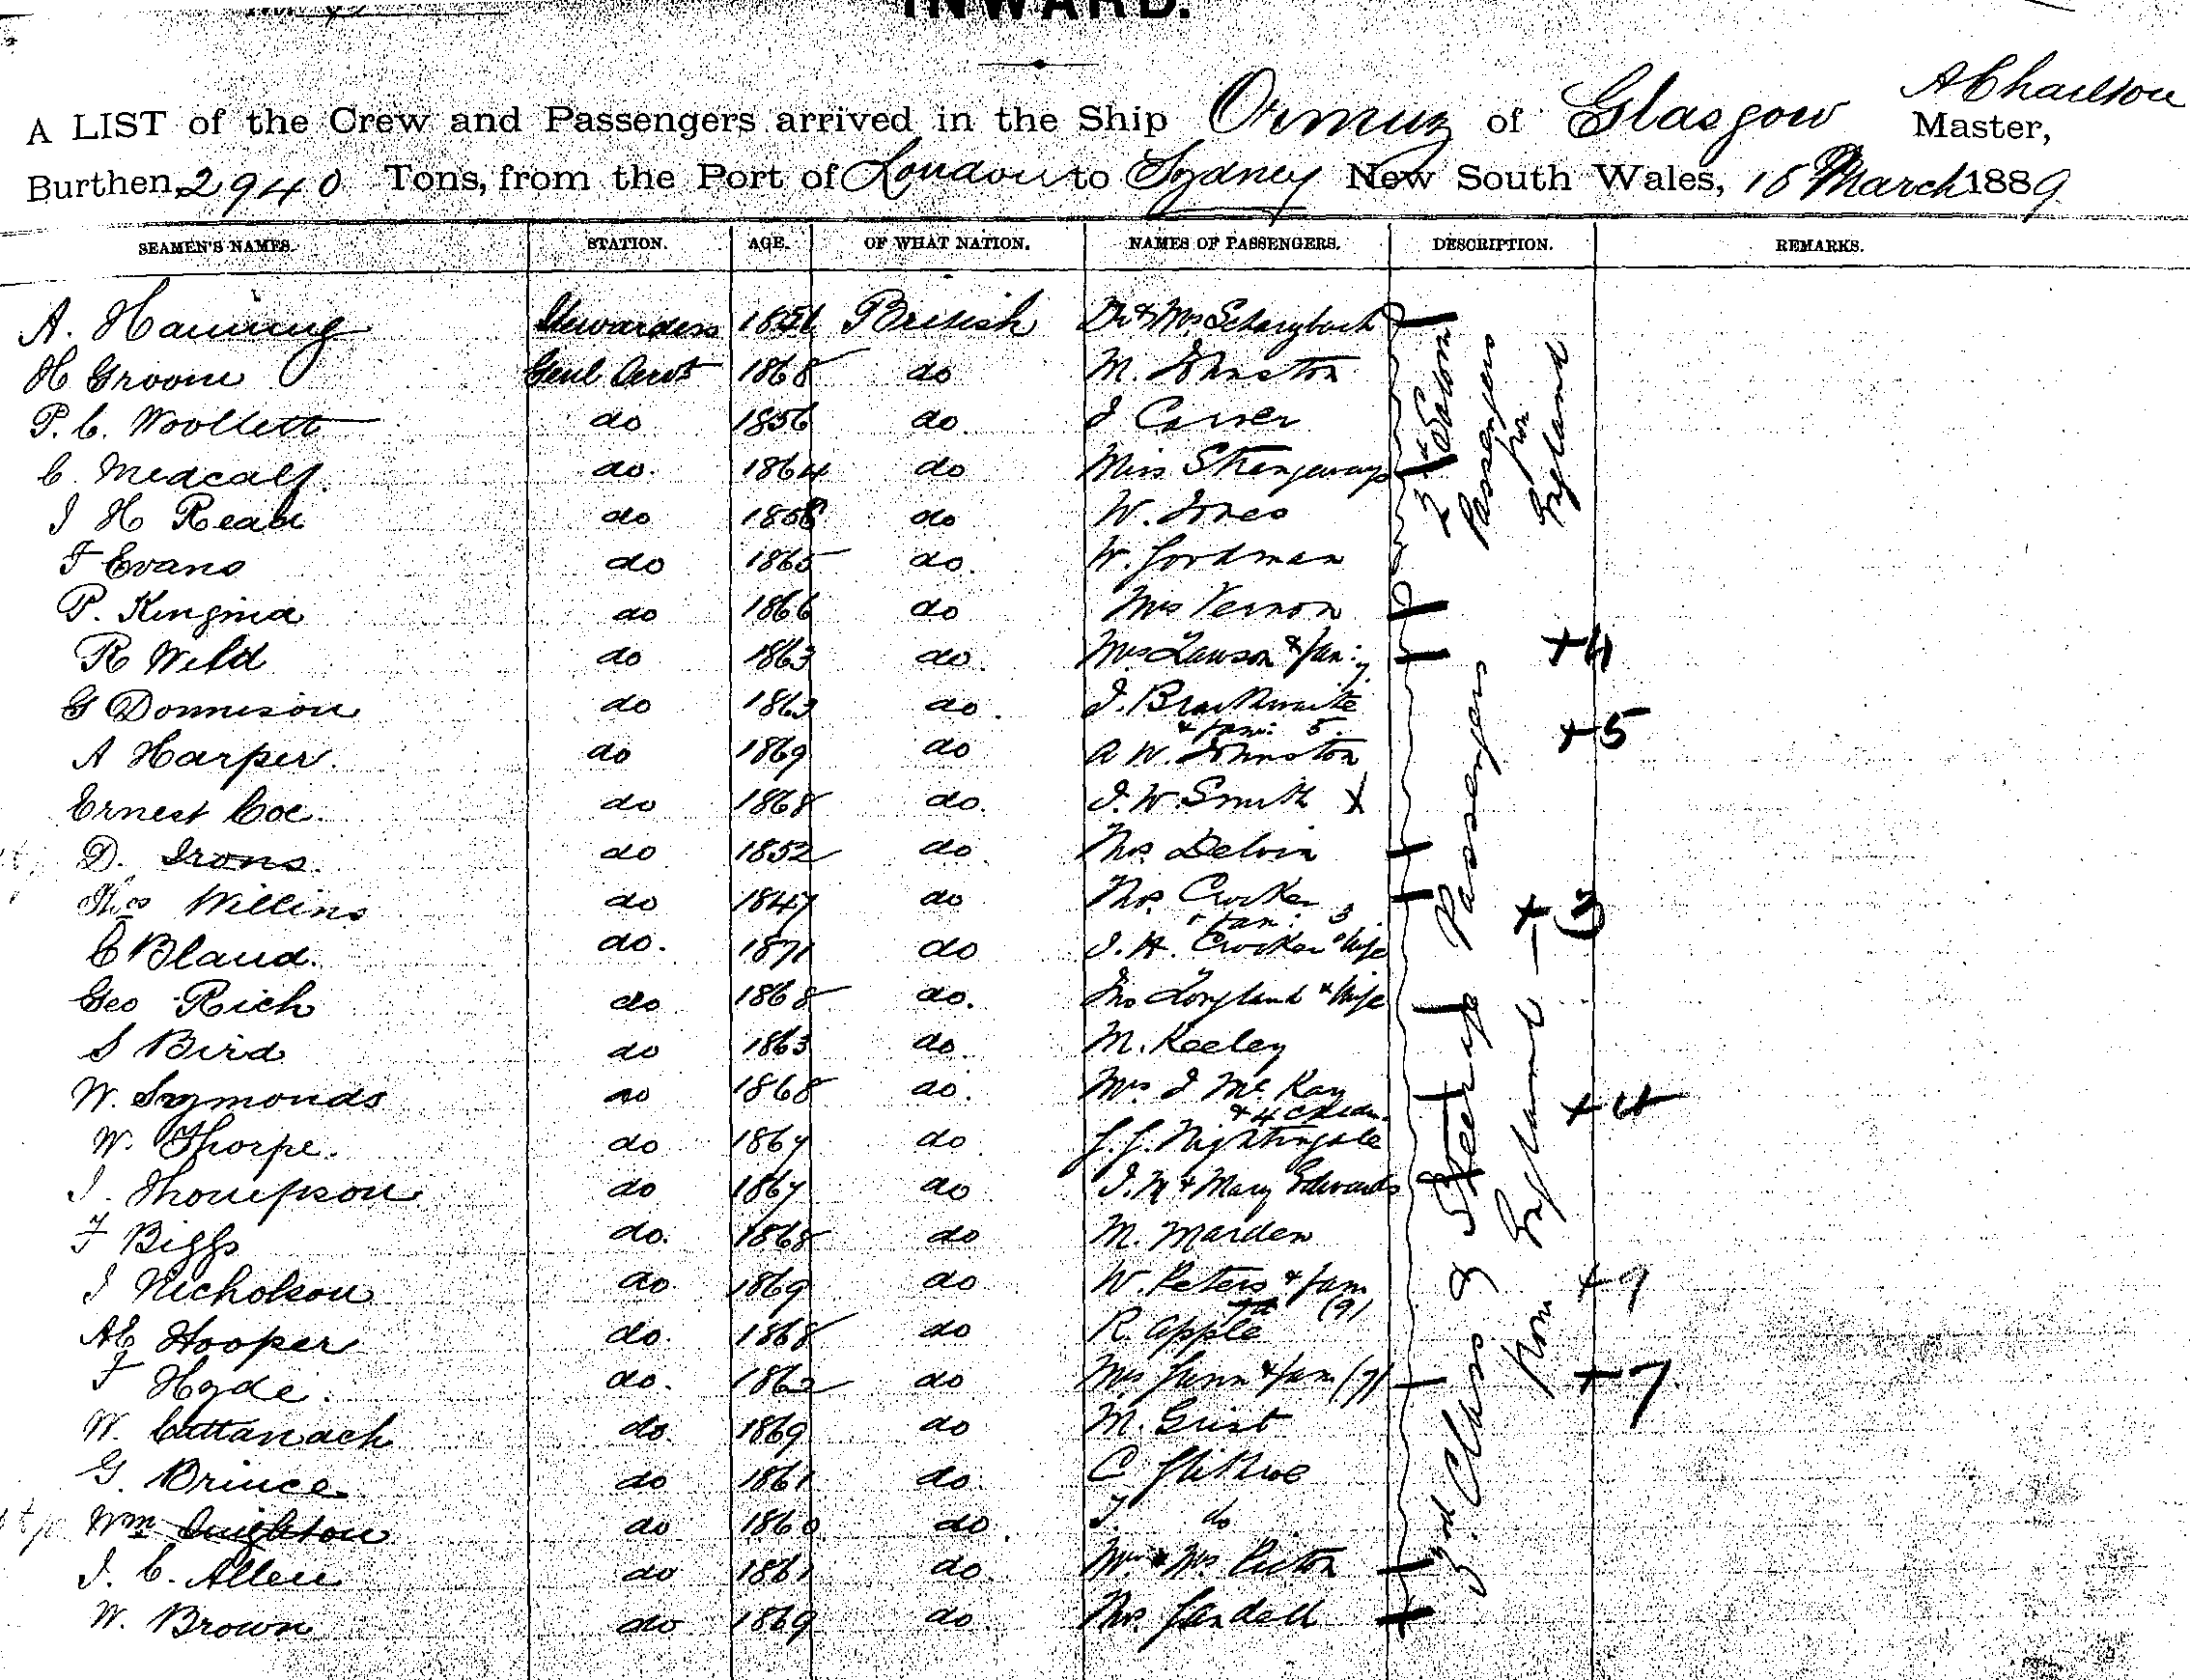 INWARD.
A LIST of the Crew and Passengers arrived in the Ship Ormuz of Glasgow A Charlton Master,
Burthen 2940 Tons, from the Port of London to Sydney New South Wales, 15 March 1889
SEAMEN'S NAMES. STATION. AGE. OF WHAT NATION. NAMES OF PASSENGERS. DESCRIPTION. REMARKS.
A. Stewardess 1851 British Dr & Mrs
H Groom Genl Servt 1868 do M. Johnston
P. C. Woollett do 1856 do J Carver
C. Medcalf do. 1864 do Miss Strengways
J H Read do 1858 do W. Jones
F Evans do 1865 do. W. Goodman
P. do 1866 do Mrs Vernon
R Wild do 1863 do. Mrs Lawson & fam: +4
G Donnison do 1863 do. J. Braithwaite
& fam: 5. +5
A Harper. do 1869 do A W. Johnston
Ernest Coe. do 1868 do. J. W. Smith X
D. Irons. do 1852 do. Mrs Delvin
Thos Willins do 1847 do Mrs Crocker
& fam: 3 +3
C Bland. do. 1871 do J. H. Crocker & Wife
Geo Rich do 1868 do. Jno Longland & Wife
S Bird do 1863 do. M. Keeley
W. Symonds do 1868 do. Mrs J Mc Kay
& 4 children +4
W. Thorpe. do 1867 do J. J. Nightingale
J. Thompson. do 1867 do J. M & Mary Edwards
F Biggs do. 1868 do M. Marden
J Nicholson do. 1869 do W. Peters & fam
(9) +9
AE Hooper do. 1868 do R. Apple
F Hyde. do. 1862 do Mrs Gunn & fam (7) +7
W. Cattanach do. 1869 do M. Grist
G. Prince. do 1861 do. C
Wm Singleton do 1860 do. J. do
J. C. Allen do 1861 do. Mr & Mrs
W. Brown do 1869 do. Mrs
2nd Saloon
Passengers
from
England
3rd Class & Steerage Passengers
from England